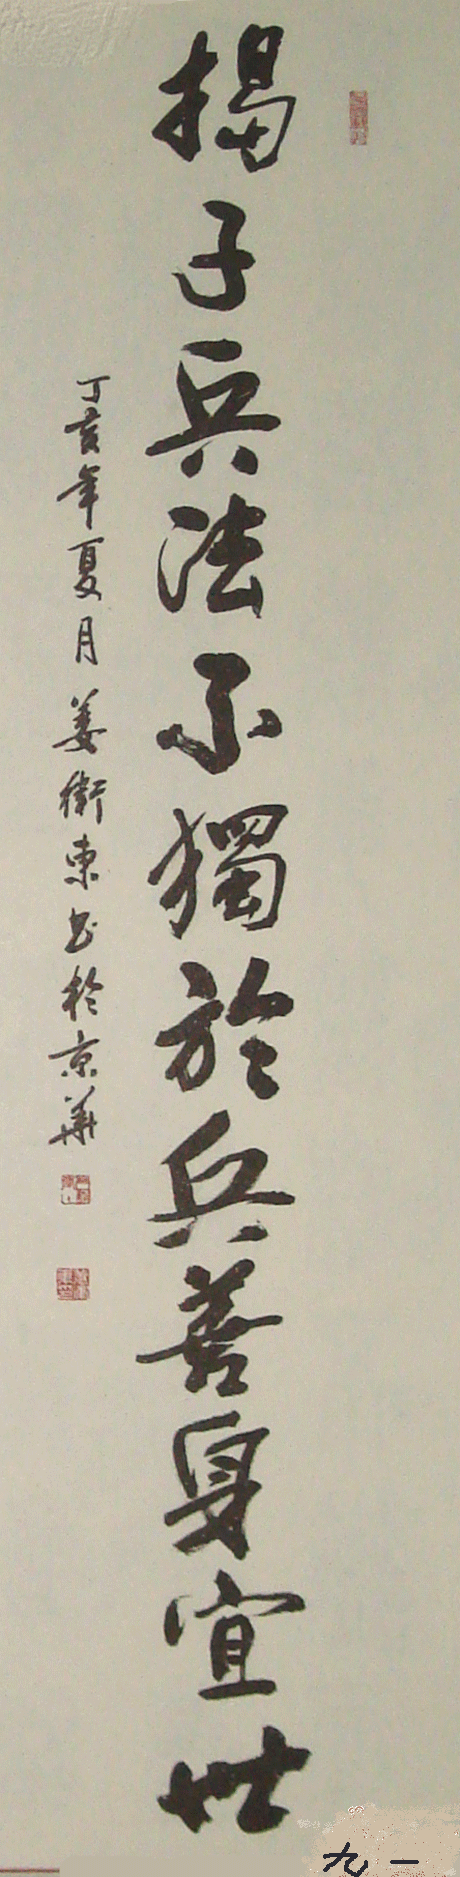 揭子兵法不獨於兵善身宜世
丁亥年夏月姜衛東书於京華
九一